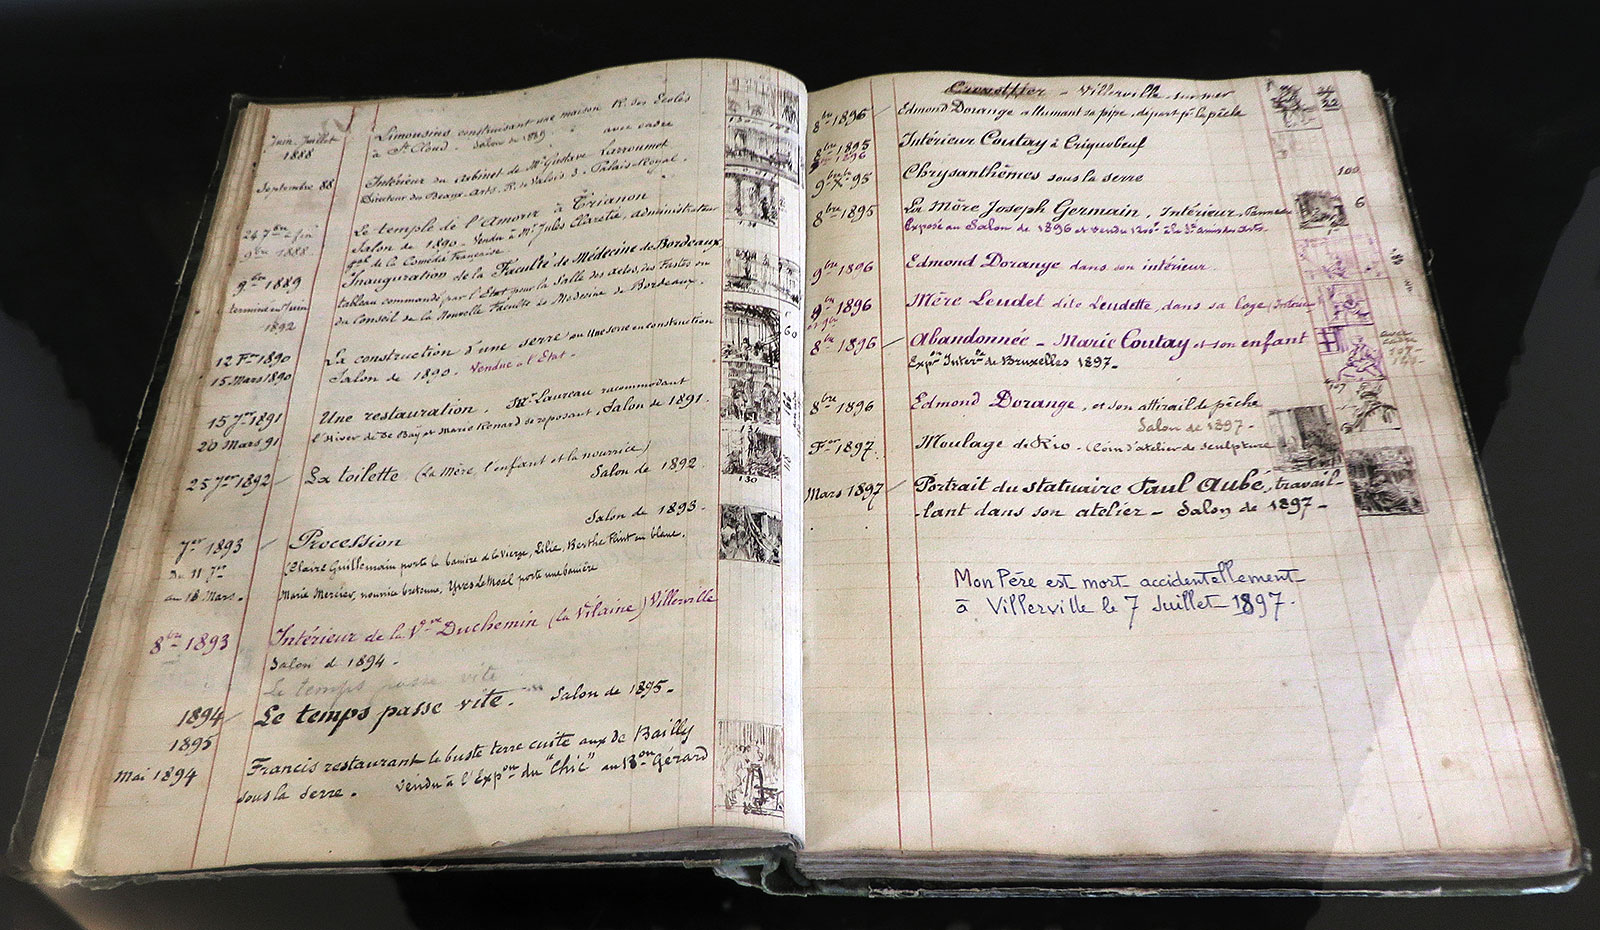 Juin Juillet Limousins construisant une maison R. des Ecoles
1888 à St Cloud. Salon de 1889. avec cadre
Septembre 88 Intérieur du Cabinet de Mr Gustave Larroumet
Directeur des Beaux-Arts. R. de Valois 3. Palais-Royal.
Le temple de l'Amour à Trianon
24 7bre à fin Salon de 1890. Vendu à Mr Jules Claretie, administrateur
9bre 1888. gal de la Comédie Française
9bre 1889 Inauguration de la Faculté de Médecine de Bordeaux
terminé en Juin tableau commandé par l'Etat pour la Salle des actes, des Fastes ou
1892 du Conseil de la Nouvelle Faculté de Médecine de Bordeaux.
12 Fer 1890 La construction d'une serre ou Une serre en construction
15 Mars 1890 Salon de 1890. Vendue à l'Etat.
15 Jer 1891 Une restauration. Mr Laureau raccommodant
20 Mars 91 l'hiver de De Bay et Mario Renard se reposant, Salon de 1891.
25 Jer 1892 La toilette (La Mère, l'enfant et la nourrice) Salon de 1892
Salon de 1893.
Jer 1893 Procession
Du 11 Jer (Claire Guillemain porte la banière de la Vierge, Lilie, Berthe Flint en blanc.
au 18 Mars. Marie Mercier, nourrice bretonne, Yves de Moal porte une banière
8bre 1893 Intérieur de la Vve Duchemin (la Vilaine) Villerville
Salon de 1894.
Le temps passe vite
1894 Le temps passe vite. Salon de 1895.
1895
Mai 1894 Francis restaurant le buste terre cuite aux de Bailly
sous la serre. Vendu à l'Expon du "Chic" au Bon Gérard
Villerville sur mer
8bre 1896 Edmond Dorange allumant sa pipe, départ pr la pêche
8bre 1895 Intérieur Coutay à Criquebeuf
1896
9bre 95 Chrysanthèmes sous la serre
8bre 1895 La Mère Joseph Germain, Intérieur, Panneau
Exposé au Salon de 1896 et vendu
9bre 1896 Edmond Dorange dans son intérieur.
9bre 1896 Mère Leudet dite Leudette, dans sa loge (Intérieur
8bre 1896 Abandonnée - Marie Coutay et son enfant
Expon Interle de Bruxelles 1897.
8bre 1896 Edmond Dorange, et son attirail de pêche
Salon de 1897.
Fer 1897 Moulage de Rio. (Coin d'atelier de sculpture
Mars 1897 Portrait du statuaire Paul Aubé, travail-
-lant dans son atelier - Salon de 1897 -
Mon Père est mort accidentellement
à Villerville le 7 Juillet 1897.